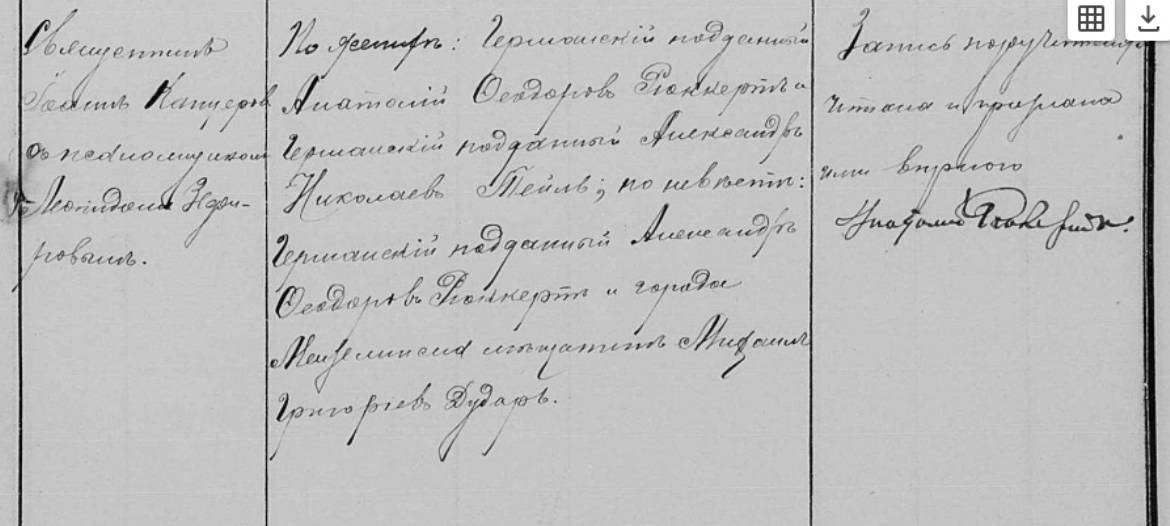 Священникъ
Іоаннъ Канцеровъ
съ псаломщикомъ
Леонидомъ Эдро-
ровымъ.
По женихѣ: Германскій подданный
Анатолій Ѳеодоровъ Рюккертъ и
Германскій подданный Александръ
Николаевъ Тейль; по невѣстѣ:
Германскій подданный Александръ
Ѳеодоровъ Рюккертъ и города
Мензелинска мѣщанинъ Михаилъ
Григоріевъ Дударь.
Запись поручителями
читана и признана
ими вѣрною
Анатолій Рюккертъ.